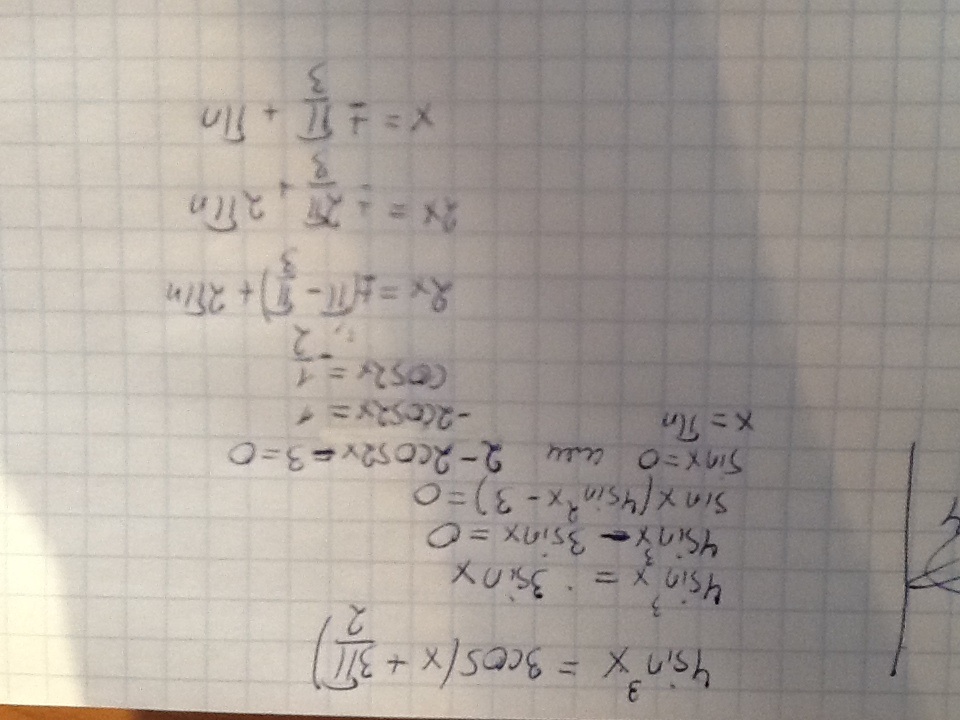 4sin³x = 3cos(x + 3π/2)
4sin³x = 3sinx
4sin³x - 3sinx = 0
sinx(4sin²x - 3) = 0
sinx = 0 или 2 - 2cos2x - 3 = 0
x = πn
-2cos2x = 1
cos2x = -1/2
2x = ±(π - π/3) + 2πn
2x = ± 2π/3 + 2πn
x = ± π/3 + πn